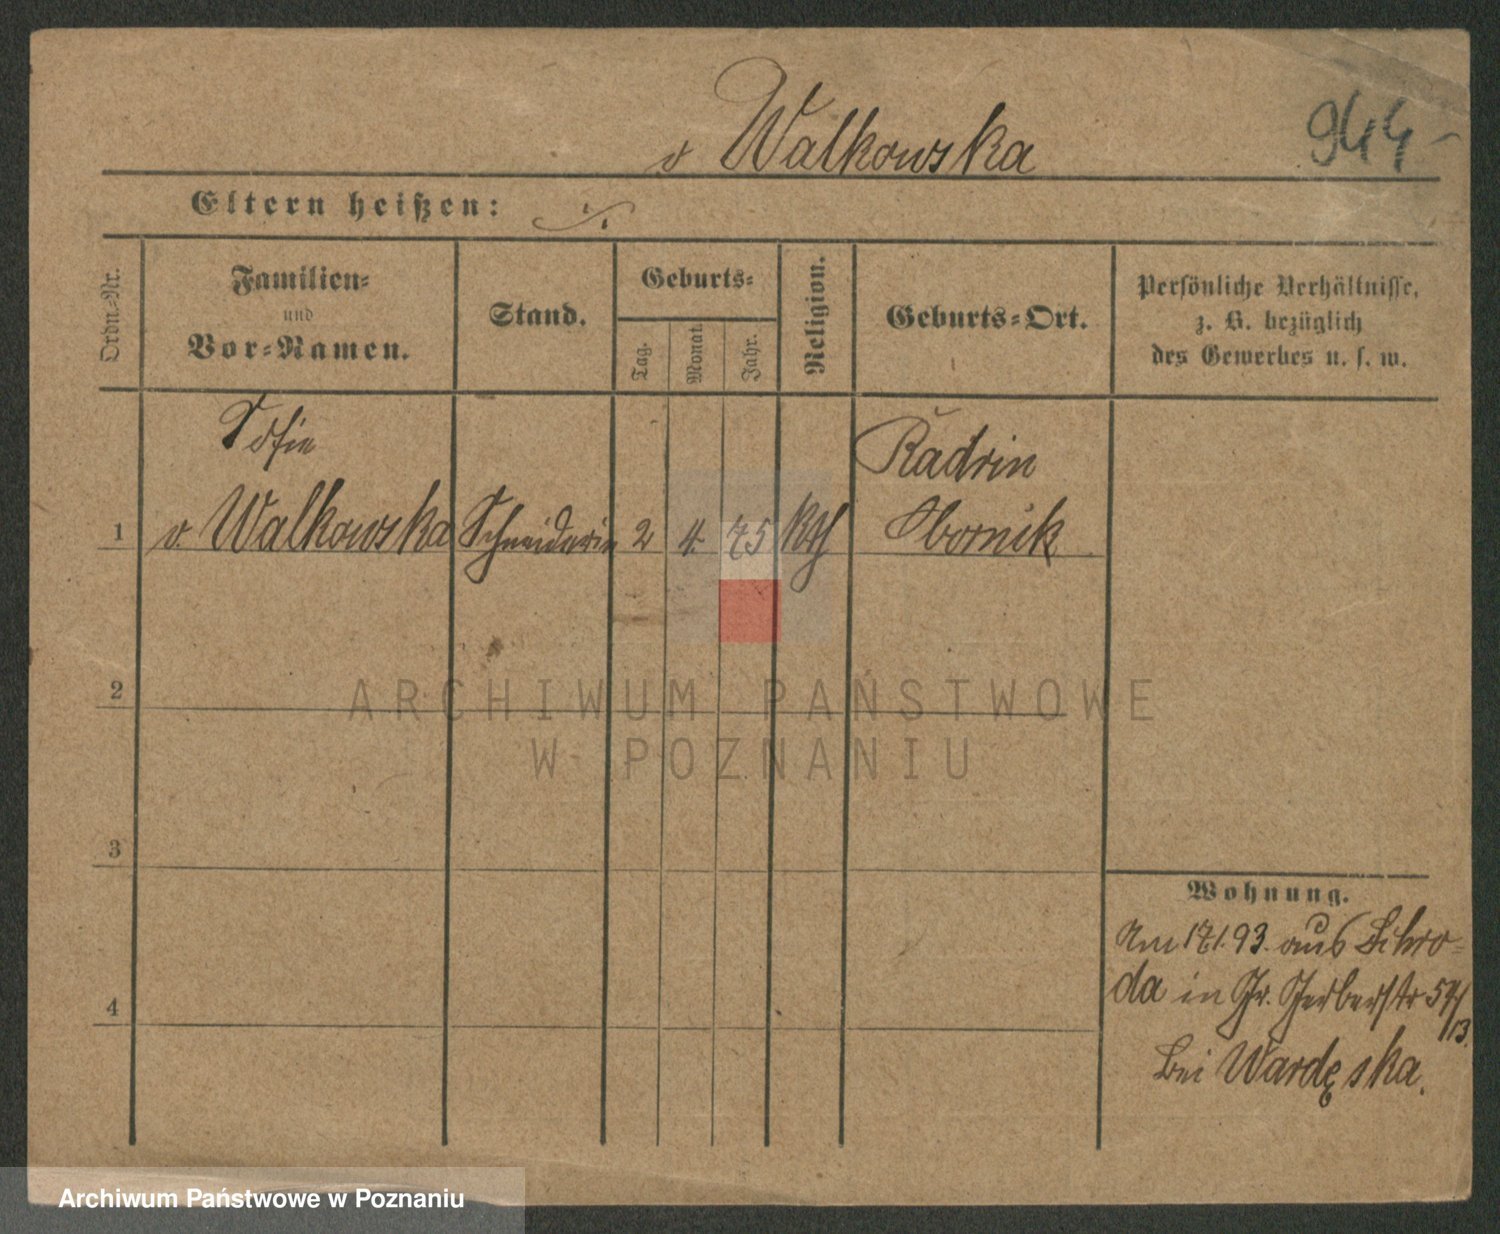 v Walkowska
944
Eltern heißen: ·/.
Ordn.-Nr.
Familien-
und
Vor-Namen.
Stand.
Geburts-
Tag.
Monat.
Jahr.
Religion.
Geburts-Ort.
Persönliche Verhältnisse,
z. B. bezüglich
des Gewerbes u. s. w.
Sofie
Radrin
1 v. Walkowska Schneiderin 2 4. 75 Kth Obornik
2
ARCHIWUM PAŃSTWOWE
W POZNANIU
3
4
Wohnung.
Am 17.1.93. aus Schro-
da in Gr. Gerberstr 54/
13.
bei Wardęska.
Archiwum Państwowe w Poznaniu